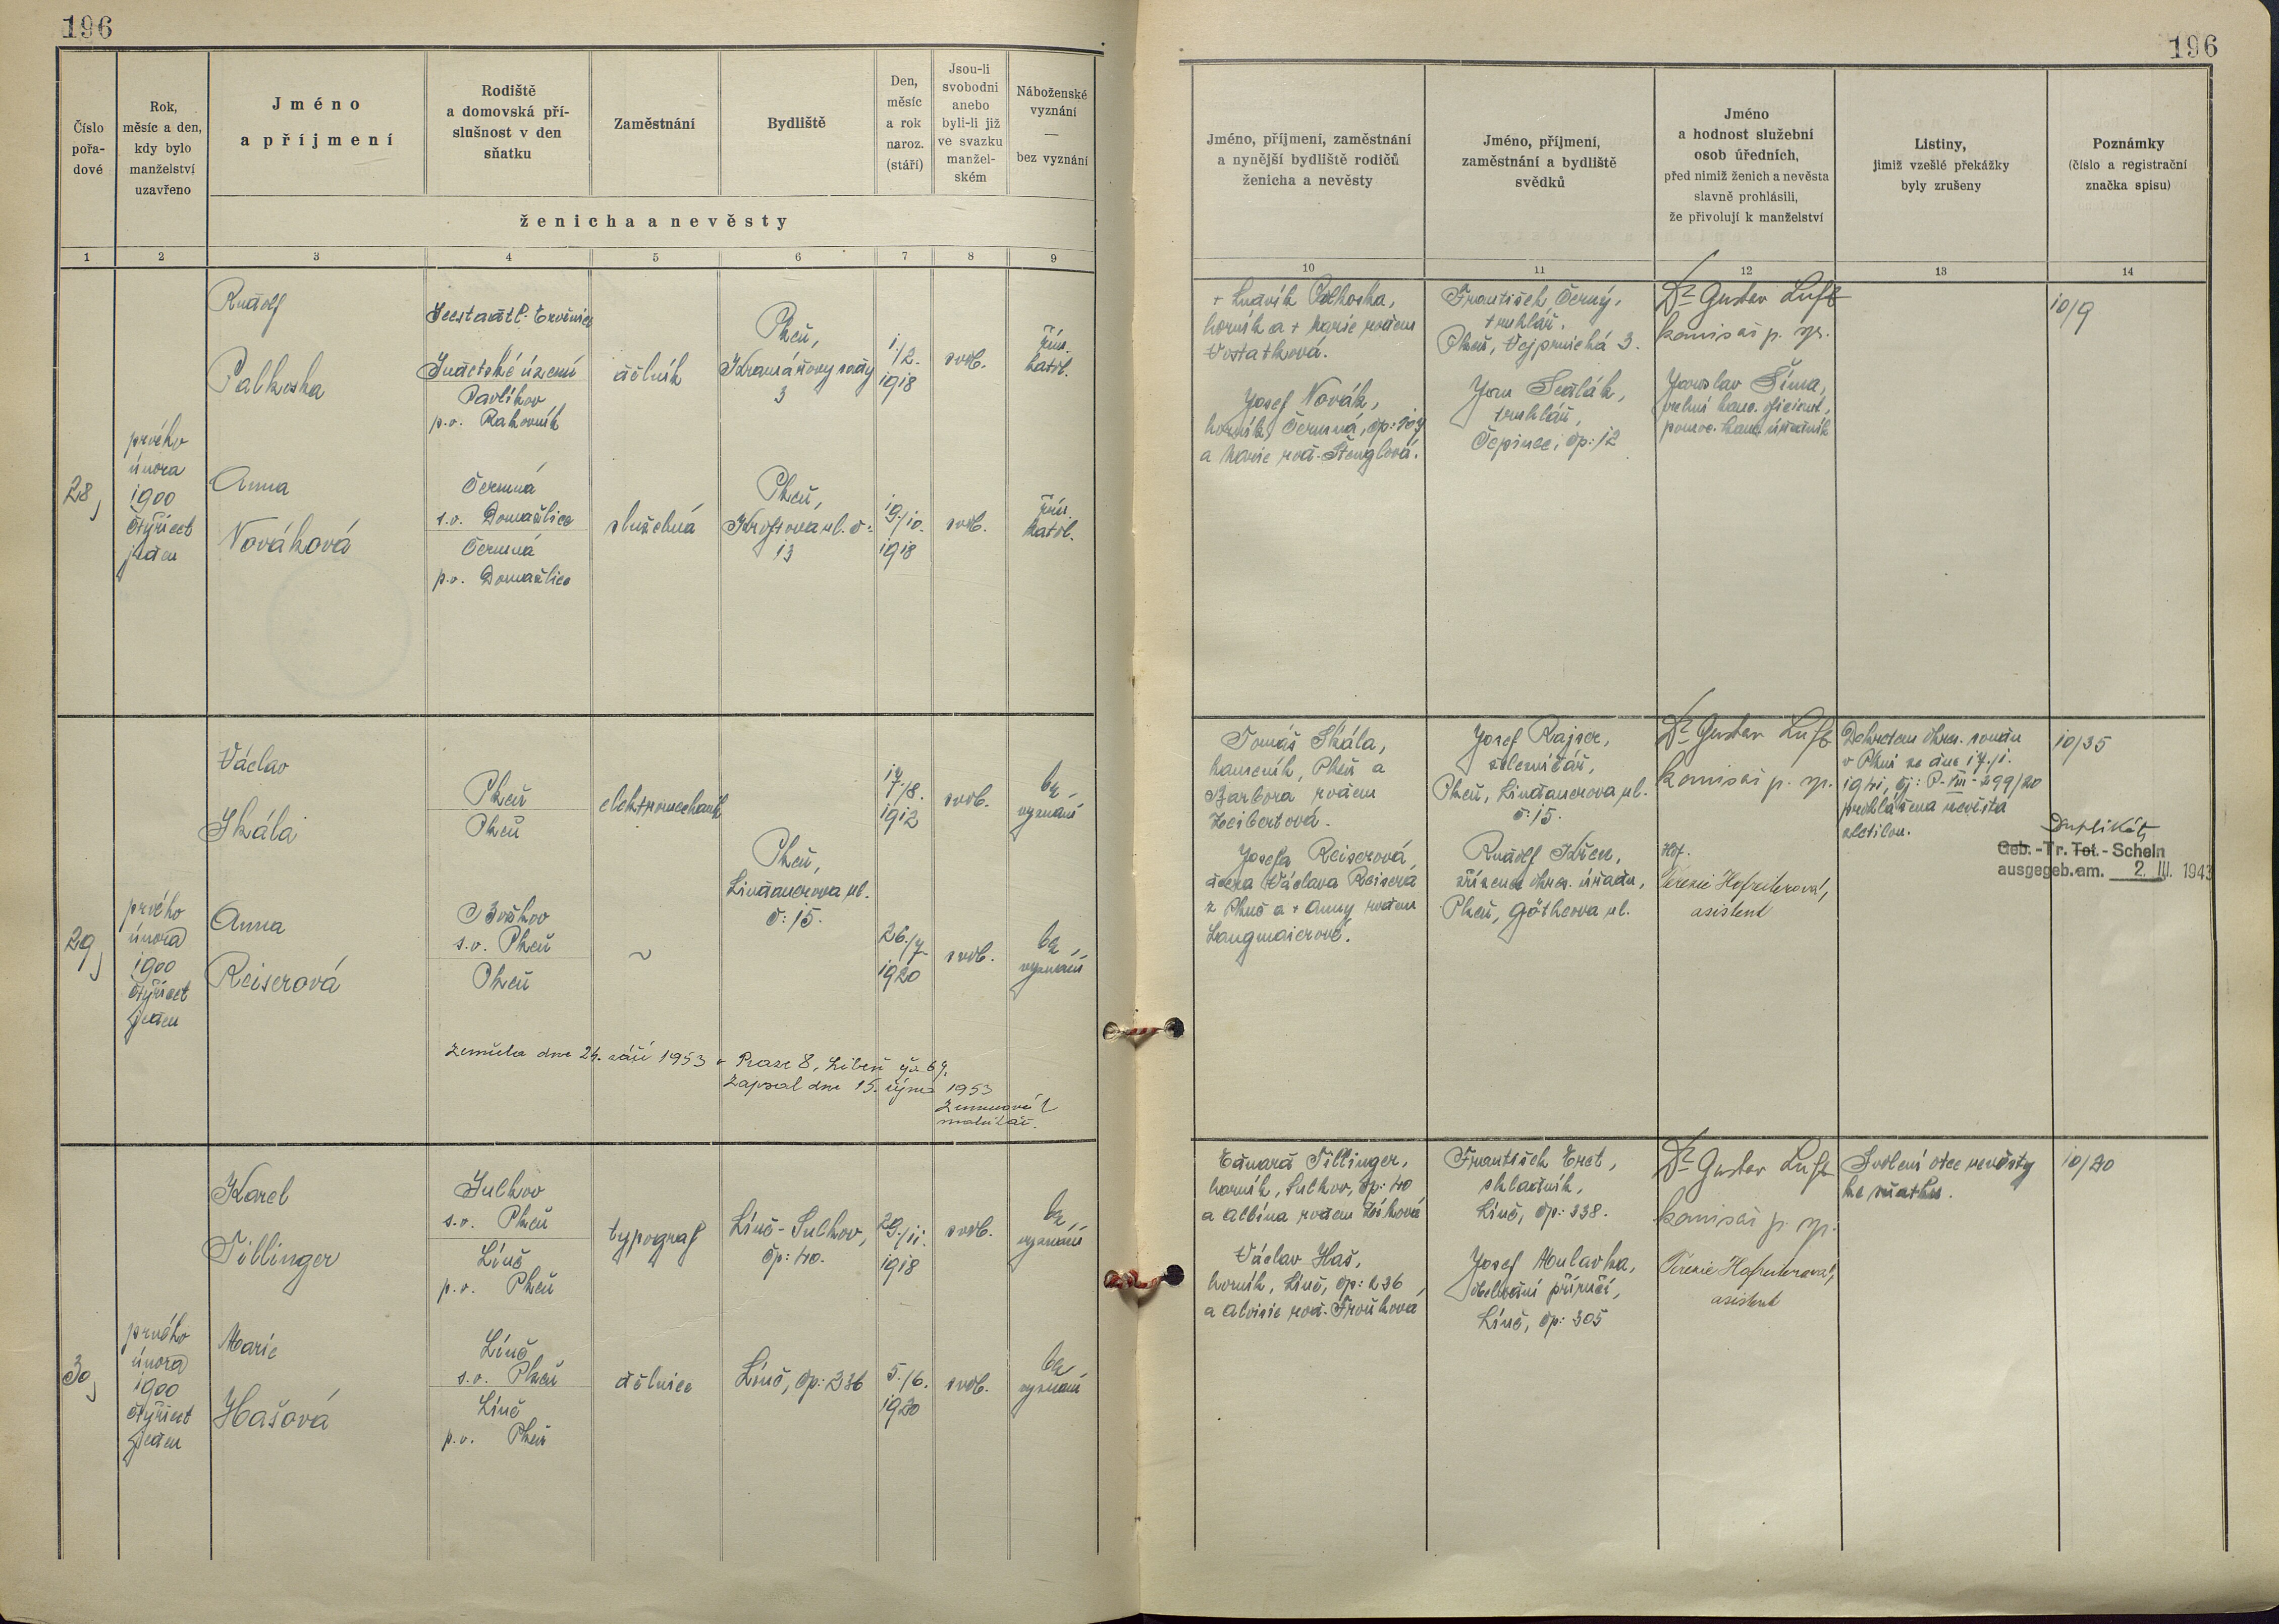 196
196
Číslo
pořa-
dové
Rok,
měsíc a den,
kdy bylo
manželství
uzavřeno
Jméno
a příjmení
Rodiště
a domovská pří-
slušnost v den
sňatku
Zaměstnání
Bydliště
Den,
měsíc
a rok
naroz.
(stáří)
Jsou-li
svobodni
anebo
byli-li již
ve svazku
manžel-
ském
Náboženské
vyznání
—
bez vyznání
ženicha a nevěsty
Jméno, příjmení, zaměstnání
a nynější bydliště rodičů
ženicha a nevěsty
Jméno, příjmení,
zaměstnání a bydliště
svědků
Jméno
a hodnost služební
osob úředních,
před nimiž ženich a nevěsta
slavně prohlásili,
že přivolují k manželství
Listiny,
jimiž vzešlé překážky
byly zrušeny
Poznámky
(číslo a registrační
značka spisu)
1 2 3 4 5 6 7 8 9
10 11 12 13 14
28,
prvého
února
1900
čtyřicet
jeden
Rudolf
Palkoska
Seestadtl-Ervěnice
Sudetské území
Pavlíkov
p.o. Rakovník
dělník
Plzeň,
Kramářovy sady
3
1./
12.
1918
svob.
řím.
katol.
Anna
Nováková
Čermná
s.o. Domažlice
Čermná
p.o. Domažlice
služebná
Plzeň,
Kroftova ul. č:
13
19./10.
1918
svob.
řím.
katol.
+ Ludvík Palkoska,
horník a + Marie rodem
Vostatková.
Josef Novák,
horník, Čermná, čp: 107
a Marie rod. Štenglová.
František Černý,
truhlář,
Plzeň, Vejprnická 3.
Jan Sedlák,
truhlář,
Čepinec, čp: 12
Dr Gustav Luft
komisař p. sp.
Jaroslav Šíma,
vrchní kanc. oficiant,
pomoc. kanc. úředník
10/9
29,
prvého
února
1900
čtyřicet
jeden
Václav
Skála
Plzeň
Plzeň
elektromechanik
Plzeň,
Lindauerova ul.
č: 15.
17./8.
1912
svob.
bez
vyznání
Anna
Reiserová
Božkov
s.o. Plzeň
Plzeň
~
26./7.
1920
svob.
bez
vyznání
Zemřela dne 24. září 1953 v Praze 8, Libeň čp. 69.
Zapsal dne 15. října 1953
matrikář.
Tomáš Skála,
kameník, Plzeň a
Barbora rodem
Zeibertová.
Josefa Reiserová,
dcera Václava Reisera
z Plzně a + Anny rodem
Langmaierové.
Josef Rajser,
železničář,
Plzeň, Lindauerova ul.
č: 15.
Rudolf Křen,
zřízenec okres. úřadu,
Plzeň, Götheova ul.
Dr Gustav Luft
komisař p. sp.
Hof.
Terezie Hofreiterová,
asistent
Dekretem okres. soudu
v Plzni ze dne 17./1.
1941, čj: P-VII-299/20
prohlášena nevěsta
zletilou.
10/35
Duplikát
Geb.-Tr. Tot.-Schein
ausgegeb. am. 2. III. 1943
30,
prvého
února
1900
čtyřicet
jeden
Karel
Tillinger
Sulkov
s.o. Plzeň
Líně
p.o. Plzeň
typograf
Líně-Sulkov,
čp: 40.
29./11.
1918
svob.
bez
vyznání
Marie
Hašová
Líně
s.o. Plzeň
Líně
p.o. Plzeň
dělnice
Líně, čp: 236
5./6.
1920
svob.
bez
vyznání
Eduard Tillinger,
horník, Sulkov, čp: 40
a Albína rodem Zíková
Václav Haš,
horník, Líně, čp: 236,
a Aloisie rod. Froňková
František Eret,
skladník,
Líně, čp: 338.
Josef Mulavka,
obchodní příručí,
Líně, čp: 305
Dr Gustav Luft
komisař p. sp.
Terezie Hofreiterová,
asistent
Svolení otce nevěsty
ke sňatku.
10/20